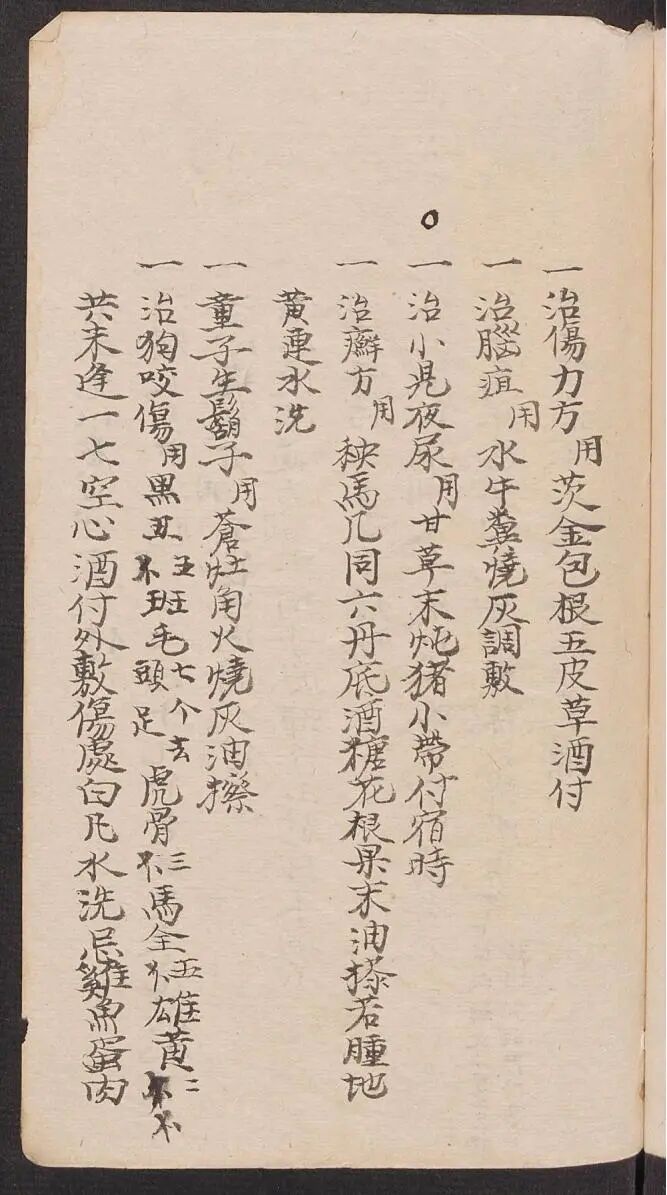 一治傷力方用茨金包根五皮草酒付
一治腦疽用水牛糞燒灰調敷
一治小児夜尿用甘草末炖猪小帶付宿時
一治癬方用秧馬几同六丹底酒糖花根果末油搽若腫地
黄連水洗
一童子生鬍子用蒼灶角火燒灰油搽
一治狗咬傷用黑丑五不班毛七个去頭足虎骨三不馬全五不雄黄二不
共末逢一七空心酒付外敷傷處白凡水洗忌雞魚蛋肉